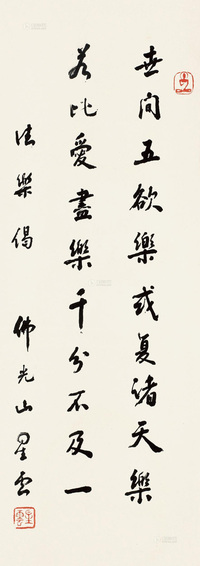 世间五欲樂或复诸天樂
若比愛盡樂千分不及一
法樂偈 佛光山星雲